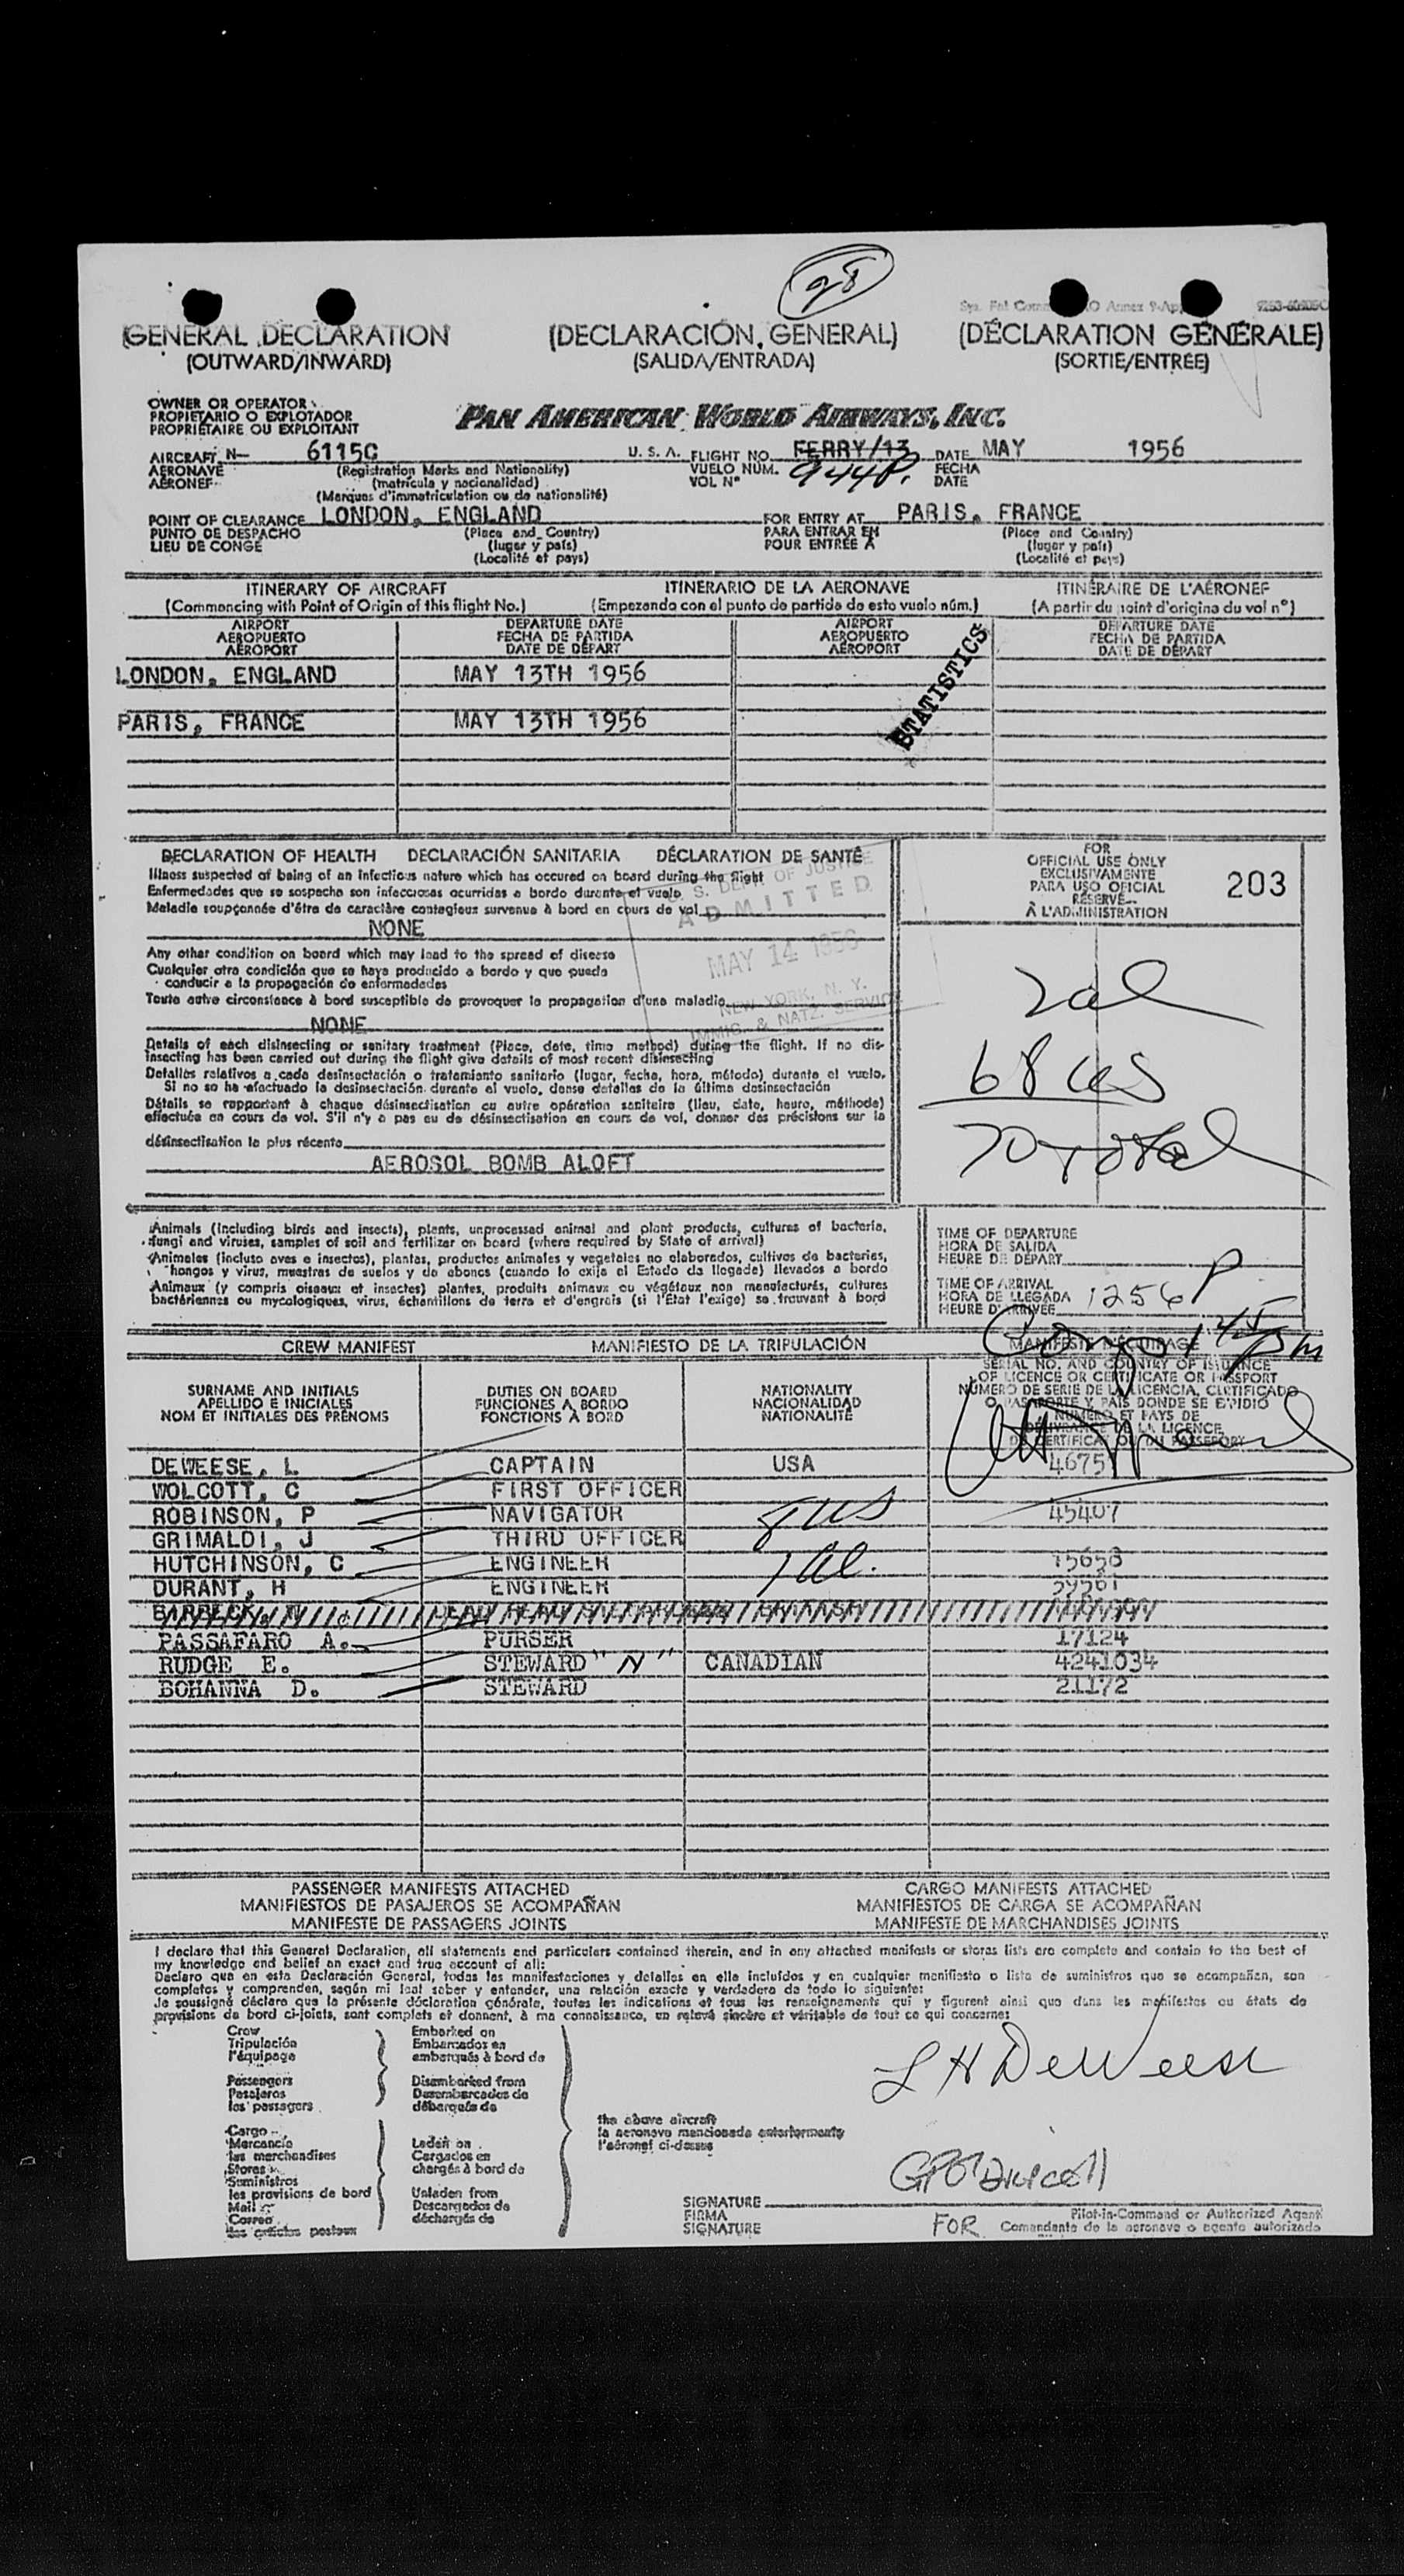 98
(GENERAL DECLARATION (DECLARACIÓN GENERAL) (DÉCLARATION GÉNÉRALE)
(OUTWARD/INWARD) (SALIDA/ENTRADA) (SORTIE/ENTRÉE)
OWNER OR OPERATOR
PROPIETARIO O EXPLOTADOR
PROPRIÉTAIRE OU EXPLOITANT
PAN AMERICAN WORLD AIRWAYS, INC.
AIRCRAFT N— 6115C U. S. A. FLIGHT NO. FERRY/13 DATE MAY 1956
AERONAVE (Registration Marks and Nationality) VUELO NÚM. 944P. FECHA
AÉRONEF (matrícula y nacionalidad) VOL Nº DATE
(Marques d'immatriculation ou de nationalité)
POINT OF CLEARANCE LONDON, ENGLAND FOR ENTRY AT PARIS, FRANCE
PUNTO DE DESPACHO (Place and Country) PARA ENTRAR EN (Place and Country)
LIEU DE CONGÉ (lugar y país) POUR ENTRÉE À (lugar y país)
(Localité et pays) (Localité et pays)
ITINERARY OF AIRCRAFT ITINERARIO DE LA AERONAVE ITINÉRAIRE DE L'AÉRONEF
(Commencing with Point of Origin of this flight No.) (Empezando con el punto de partida de esto vuelo núm.) (A partir du point d'origine du vol nº)
AIRPORT DEPARTURE DATE AIRPORT DEPARTURE DATE
AEROPUERTO FECHA DE PARTIDA AEROPUERTO FECHA DE PARTIDA
AÉROPORT DATE DE DÉPART AÉROPORT DATE DE DÉPART
LONDON, ENGLAND MAY 13TH 1956
PARIS, FRANCE MAY 13TH 1956
STATISTICS
DECLARATION OF HEALTH DECLARACIÓN SANITARIA DÉCLARATION DE SANTÉ
Illness suspected of being of an infectious nature which has occured on board during the flight
Enfermedades que se sospecha son infecciosas ocurridas a bordo durante el vuelo
Maladie soupçonnée d'être de caractère contagieux survenue à bord en cours de vol
NONE
Any other condition on board which may lead to the spread of disease
Cualquier otra condición que se haya producido a bordo y que pueda
conducir a la propagación de enfermedades
Toute autre circonstance à bord susceptible de provoquer la propagation d'une maladie
NONE
U. S. DEPT. OF JUSTICE
ADMITTED
MAY 14 1956
NEW YORK, N. Y.
IMMIG. & NATZ. SERVICE
Details of each disinsecting or sanitary treatment (Place, date, time method) during the flight. If no dis-
insecting has been carried out during the flight give details of most recent disinsecting
Detalles relativos a cada desinsectación o tratamiento sanitario (lugar, fecha, hora, método) durante el vuelo.
Si no so ha efectuado la desinsectación durante el vuelo, dense detalles de la última desinsectación
Détails se rapportant à chaque désinsectisation ou autre opération sanitaire (lieu, date, heure, méthode)
effectuée en cours de vol. S'il n'y a pas eu de désinsectisation en cours de vol, donner des précisions sur la
désinsectisation la plus récente
AEROSOL BOMB ALOFT
FOR
OFFICIAL USE ONLY
EXCLUSIVAMENTE
PARA USO OFICIAL
RÉSERVÉ
À L'ADMINISTRATION
203
2al
68 ucs
70 Total
Animals (including birds and insects), plants, unprocessed animal and plant products, cultures of bacteria,
fungi and viruses, samples of soil and fertilizer on board (where required by State of arrival)
Animales (incluso aves e insectos), plantas, productos animales y vegetales no elaborados, cultivos de bacterias,
hongos y virus, muestras de suelos y de abonos (cuando lo exija el Estado de llegada) llevados a bordo
Animaux (y compris oiseaux et insectes) plantes, produits animaux ou végétaux non manufacturés, cultures
bactériennes ou mycologiques, virus, échantillons de terre et d'engrais (si l'État l'exige) se trouvant à bord
TIME OF DEPARTURE
HORA DE SALIDA
HEURE DE DÉPART
TIME OF ARRIVAL
HORA DE LLEGADA 1256 P
HEURE D'ARRIVÉE
CREW MANIFEST MANIFIESTO DE LA TRIPULACIÓN MANIFESTE D'ÉQUIPAGE
SURNAME AND INITIALS DUTIES ON BOARD NATIONALITY SERIAL NO. AND COUNTRY OF ISSUANCE
APELLIDO E INICIALES FUNCIONES A BORDO NACIONALIDAD OF LICENCE OR CERTIFICATE OR PASSPORT
NOM ET INITIALES DES PRÉNOMS FONCTIONS À BORD NATIONALITÉ NÚMERO DE SERIE DE LA LICENCIA, CERTIFICADO
O PASAPORTE Y PAÍS DONDE SE EXPIDIÓ
NUMÉRO ET PAYS DE
DÉLIVRANCE DE LA LICENCE
DU CERTIFICAT OU DU PASSEPORT
DEWEESE, L CAPTAIN USA 4675
WOLCOTT, C FIRST OFFICER
ROBINSON, P NAVIGATOR 8 US 45407
GRIMALDI, J THIRD OFFICER
HUTCHINSON, C ENGINEER 1 al. 15658
DURANT, H ENGINEER 59561
PASSAFARO A. PURSER 17124
RUDGE E. STEWARD "N" CANADIAN 4241034
BOHANNA D. STEWARD 21172
PASSENGER MANIFESTS ATTACHED CARGO MANIFESTS ATTACHED
MANIFIESTOS DE PASAJEROS SE ACOMPAÑAN MANIFIESTOS DE CARGA SE ACOMPAÑAN
MANIFESTE DE PASSAGERS JOINTS MANIFESTE DE MARCHANDISES JOINTS
I declare that this General Declaration, all statements and particulars contained therein, and in any attached manifests or stores lists are complete and contain to the best of
my knowledge and belief an exact and true account of all:
Declaro que en esta Declaración General, todas las manifestaciones y detalles en ella incluídos y en cualquier manifiesto o lista de suministros que se acompañan, son
completos y comprenden, según mi leal saber y entender, una relación exacta y verdadera de todo lo siguiente:
Je soussigné déclare que la présente déclaration générale, toutes les indications et tous les renseignements qui y figurent ainsi que dans les manifestes ou états de
provisions de bord ci-joints, sont complets et donnent, à ma connaissance, un relevé sincère et véritable de tout ce qui concerne:
Crew Embarked on
Tripulación Embarcados en
l'équipage embarqués à bord de
Passengers Disembarked from
Pasajeros Desembarcados de
les passagers débarqués de
Cargo
Mercancía Laden on
les marchandises Cargados en
Stores chargés à bord de
Suministros
les provisions de bord Unladen from
Mail Descargados de
Correo déchargés de
les articles postaux
the above aircraft
la aeronave mencionada anteriormente
l'aéronef ci-dessus
L H DeWeese
GPO'Driscoll
SIGNATURE
FIRMA Pilot-in-Command or Authorized Agent
SIGNATURE FOR Comandante de la aeronave o agente autorizado